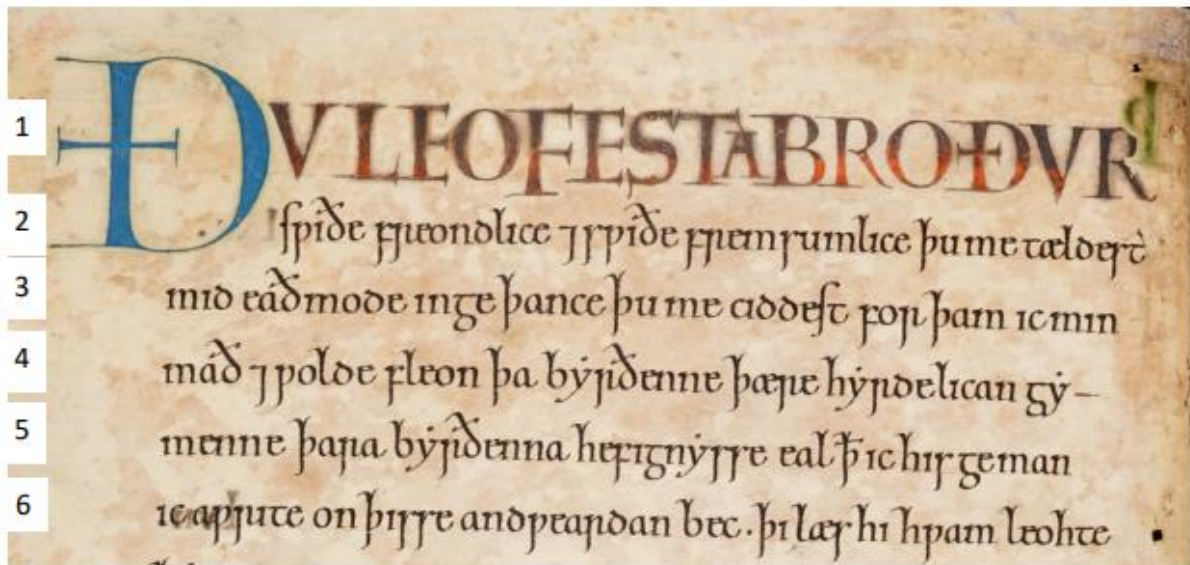 1 ÐVLEOFESTABROÐVR
2 sƿiðe freondlice ⁊ sƿiðe fremsumlice þu me tældest
3 mid eáðmode inge þance þu me ciddest for þam ic min
4 máð ⁊ ƿolde fleon þa bẏrðenne þære hẏrdelican gẏ-
5 menne þara bẏrðenna hefignẏsse eal ꝥ ic his geman
6 ic aƿrite on þisse andƿeardan bec. þi læs hi hƿam leohte